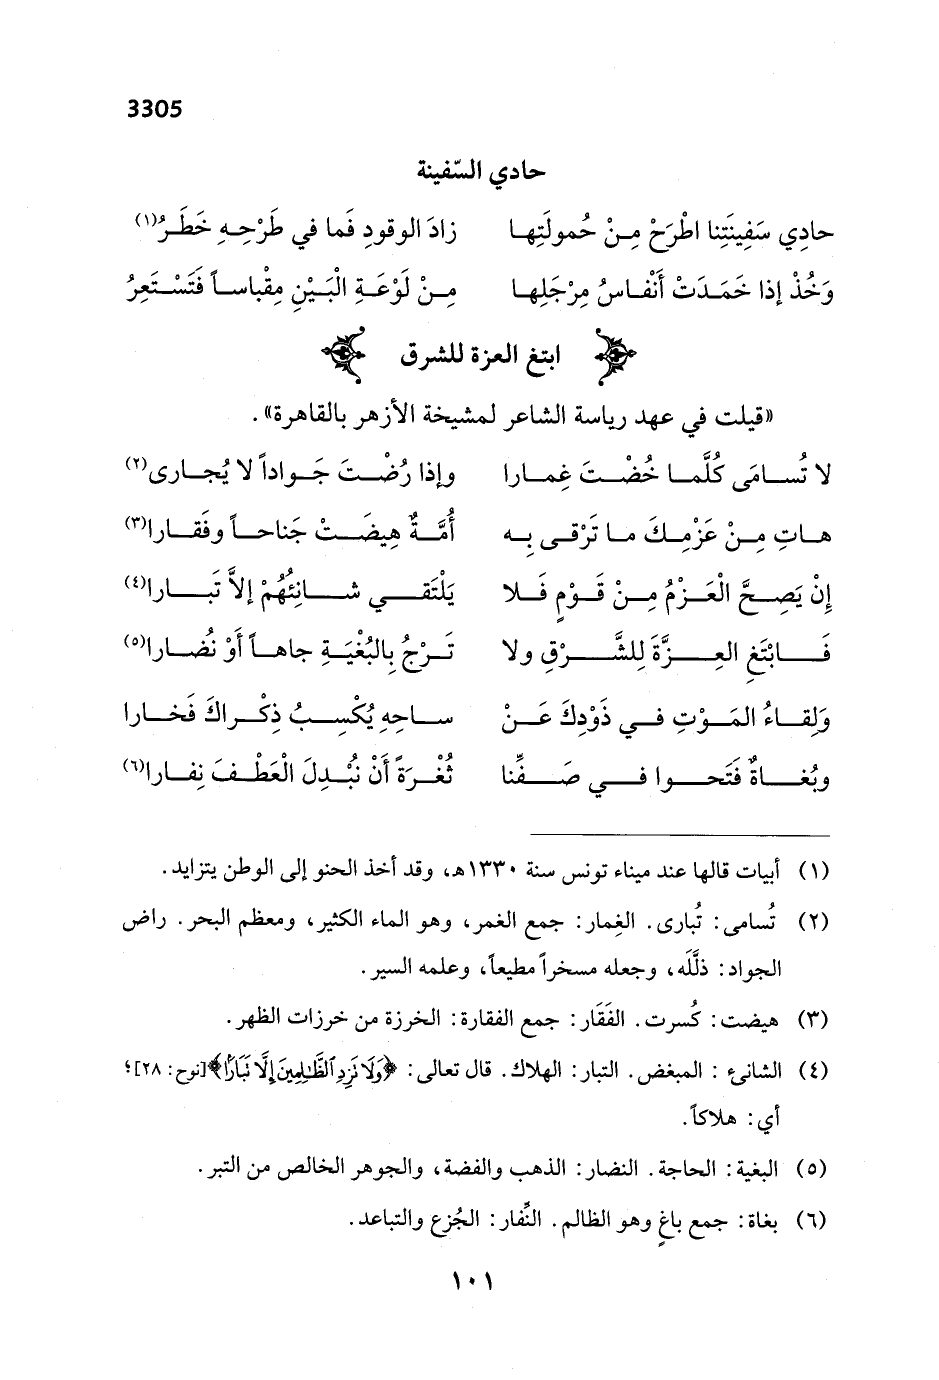 3305
حادي السّفينة
حادِي سَفِينَتِنا اطْرَحْ مِـنْ حُمولَتِهـا زادَ الوقودِ فَما في طَرْحِـهِ خَطَـرُ(١)
وَخُذْ إذا خَمَـدَتْ أَنْفـاسُ مِرْجَلِهـا مِـنْ لَوْعَـةِ الْبَيْنِ مِقْباسـاً فَتَسْـتَعِرُ
ابتغ العزة للشرق
«قيلت في عهد رياسة الشاعر لمشيخة الأزهر بالقاهرة».
لا تُسـامَى كُلَّمـا خُضْـتَ غِمـارا وإذا رُضْـتَ جَـواداً لا يُجـارى(٢)
هـاتِ مِـنْ عَزْمِـكَ مـا تَرْقـى بِـه أُمَّـةٌ هِيضَـتْ جَناحـاً وفَقـارا(٣)
إنْ يَصِـحَّ الْعَـزْمُ مِـنْ قَـوْمٍ فَـلا يَلْتَقـي شـانِئُهُمْ إلاَّ تَبـارا(٤)
فَـابْتَغِ العِـزَّةَ لِلشَّـرْقِ ولا تَـرْجُ بِالبُغْيَـةِ جاهـاً أَوْ نُضـارا(٥)
وَلِقـاءُ المَـوْتِ فـي ذَوْدِكَ عَـنْ سـاحِهِ يُكْسِـبُ ذِكْـراكَ فَخـارا
وبُغـاةٌ فَتَحـوا فـي صَـفِّنا ثُغْـرَةً أَنْ نُبْـدِلَ الْعَطْـفَ نِفـارا(٦)
(١) أبيات قالها عند ميناء تونس سنة ١٣٣٠هـ، وقد أخذ الحنو إلى الوطن يتزايد.
(٢) تُسامى: تُبارى. الغِمار: جمع الغمر، وهو الماء الكثير، ومعظم البحر. راض
الجواد: ذلَّلَه، وجعله مسخراً مطيعاً، وعلمه السير.
(٣) هيضت: كُسرت. الفَقَار: جمع الفقارة: الخرزة من خرزات الظهر.
(٤) الشانئ : المبغض. التبار: الهلاك. قال تعالى: ﴿وَلَا نَزِدِ ٱلظَّٰلِمِينَ إِلَّا تَبَارًۢا﴾[نوح: ٢٨]؛
أي: هلاكاً.
(٥) البغية: الحاجة. النضار: الذهب والفضة، والجوهر الخالص من التبر.
(٦) بغاة: جمع باغٍ وهو الظالم. النِّفار: الجُزع والتباعد.
١٠١